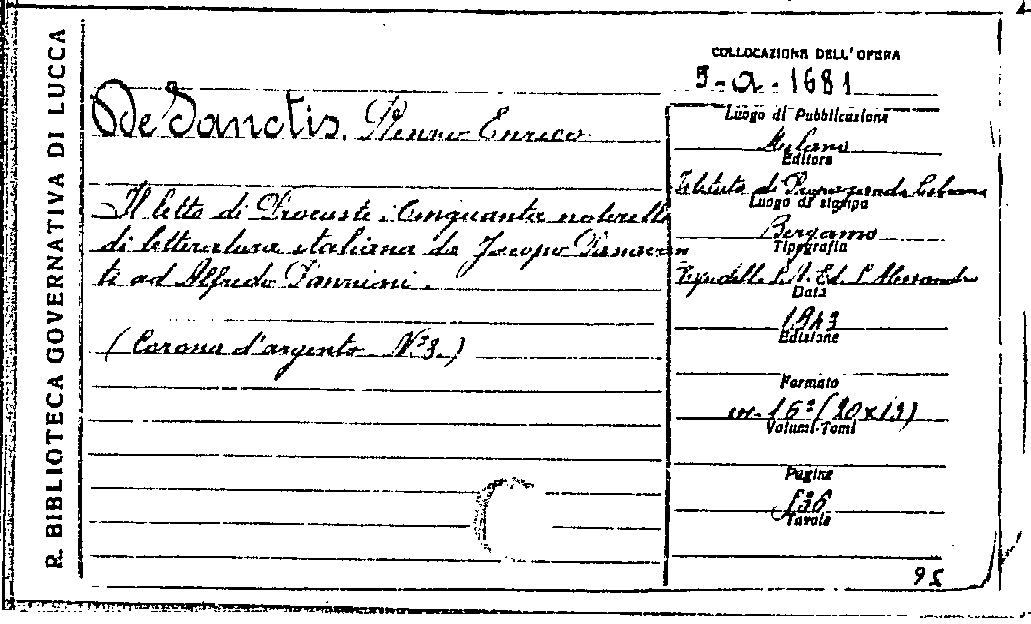 R. BIBLIOTECA GOVERNATIVA DI LUCCA
De Sanctis. Enrico
Il letto di Procuste: Cinquanta novelle
di letteratura italiana da Jacopo
ti ad Alfredo Panzini.
(Corona d'argento N° 3.)
COLLOCAZIONE DELL'OPERA
5-a-1681
Luogo di Pubblicazione
Milano
Editore
Istituto di Propaganda Libraria
Luogo di stampa
Bergamo
Tipografia
S. A. Ed. S. Alessandro
Data
1943
Edizione
Formato
in-16° (20x13)
Volumi-Tomi
Pagine
136
Tavole
95